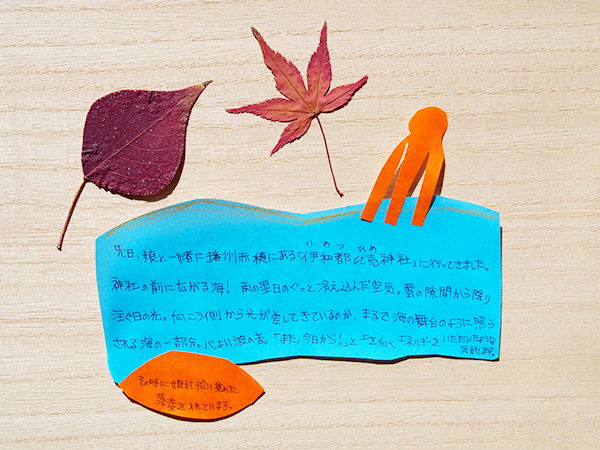 いわつ ひめ
先日、娘と一緒に播州赤穂にある「伊和都比売神社」に行ってきました。
神社の前に広がる海！雨の翌日のぐっと冷え込んだ空気。雲の隙間から降り
注ぐ日の光。向こう側から光が差してきているのが、まるで海の舞台のように照ら
される海の一部分。心よい波の音。「また、今日から！」と上を向くエネルギーをいただいたような
気がします。
その時に娘が拾い集めた
落葉を入れています。